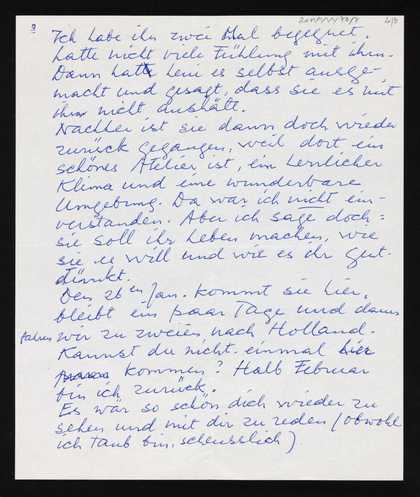 2
4/5
Ich habe ihn zwei Mal begegnet.
hatte nicht viele Fühlung mit ihm.
Dann hatte Leni es selbst ausge-
macht und gesagt, dass sie es mit
ihm nicht aushält.
Nachher ist sie dann doch wieder
zurück gegangen, weil dort ein
schönes Atelier ist, ein herrlicher
Klima und eine wunderbare
Umgebung. Da war ich nicht ein-
verstanden. Aber ich sage doch:
sie soll ihr Leben machen, wie
sie es will und wie es ihr gut-
dünkt.
Den 26en Jan. kommt sie hier,
bleibt ein paar Tage und dann
fahren wir zu zweien nach Holland.
Kannst du nicht einmal hier
kommen? Halb Februar
bin ich zurück.
Es wär so schön dich wieder zu
sehen und mit dir zu reden (obwohl
ich taub bin, scheusslich)